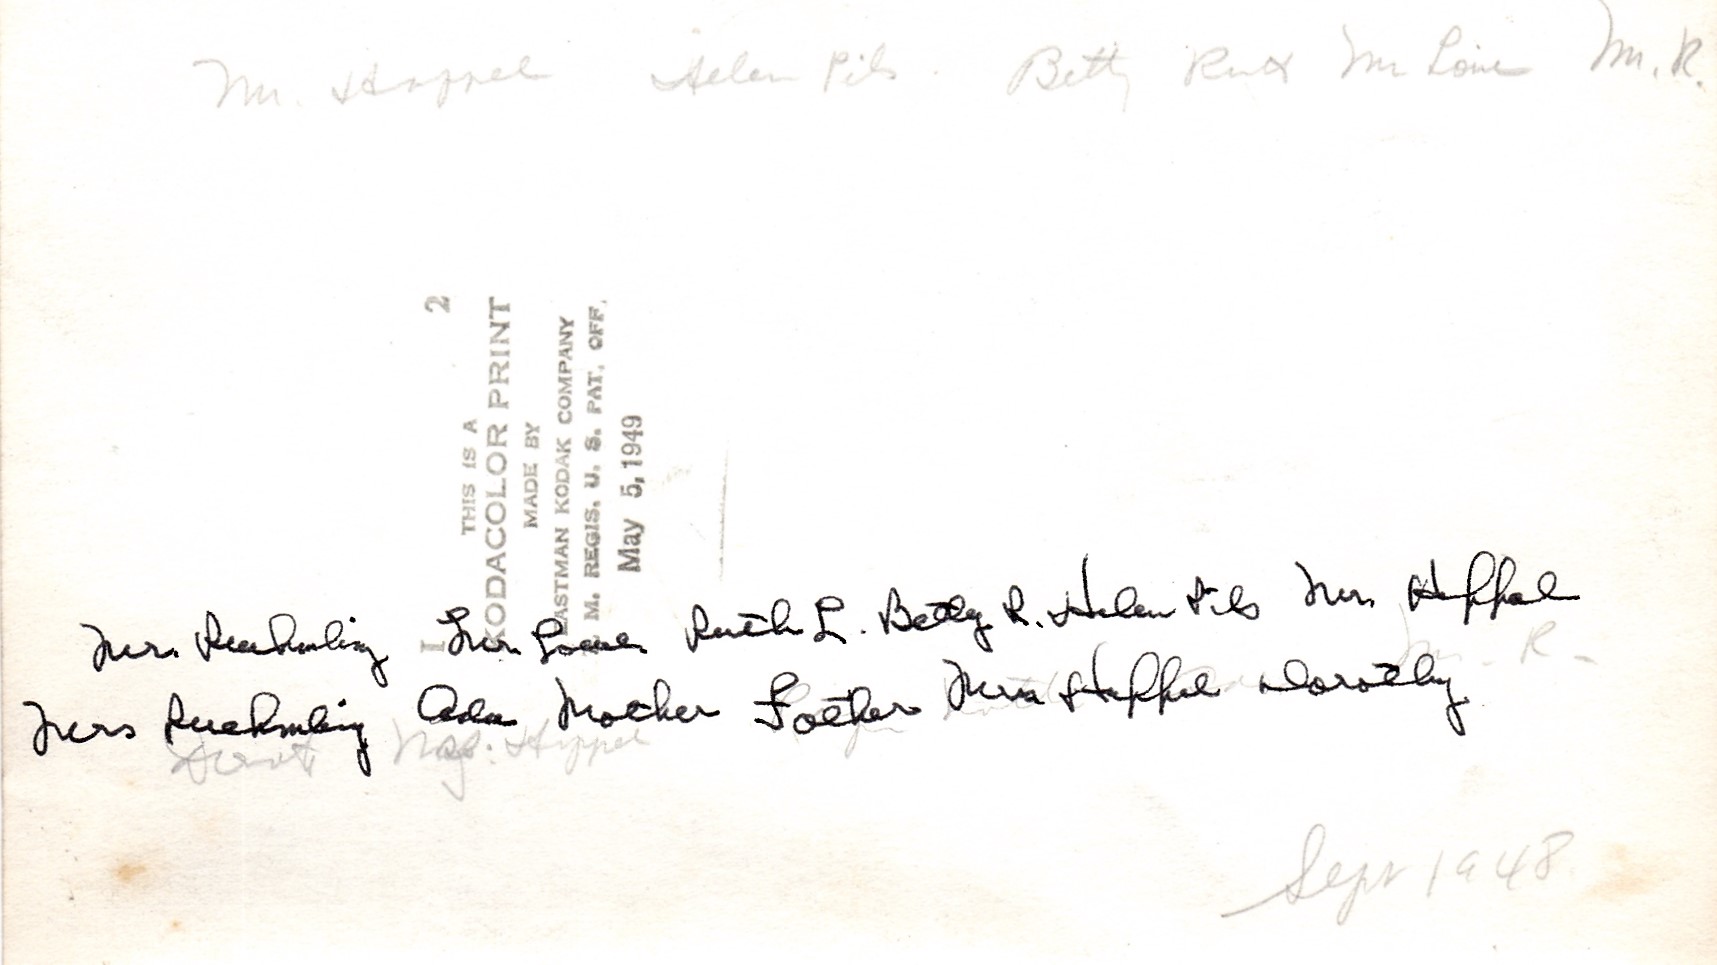 Mr. Happel Helen Pils. Betty Ruth Mr Lowe Mr. R.
L 2
THIS IS A
KODACOLOR PRINT
MADE BY
EASTMAN KODAK COMPANY
T. M. REGIS. U. S. PAT. OFF.
May 5, 1949
Mr. Ruehmling Mr. Lowe Ruth L. Betty R. Helen Pils Mr. Happel
Mr. R.
Mrs Ruehmling Ada Mother Father Mrs Happel Dorothy
Happel
Sept 1948